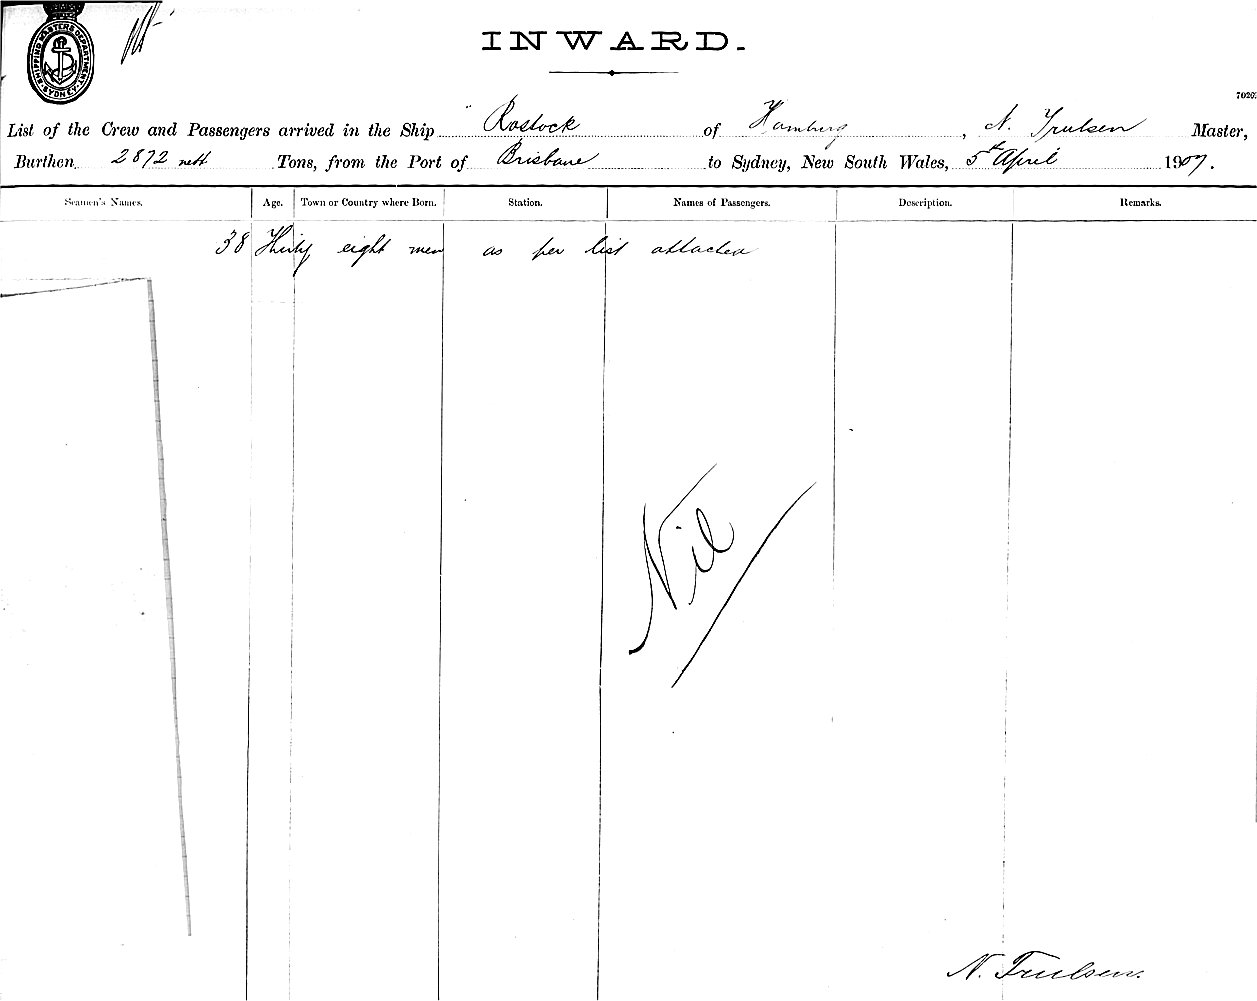 SHIPPING MASTERS DEPARTMENT SYDNEY
INWARD.
List of the Crew and Passengers arrived in the Ship Rostock of Hamburg, N. Trulsen Master,
Burthen 2872 nett Tons, from the Port of Brisbane to Sydney, New South Wales, 5th April 1907.
Seamen's Names. Age. Town or Country where Born. Station. Names of Passengers. Description. Remarks.
38 Thirty eight men as per list attached
Nil
N. Trulsen.